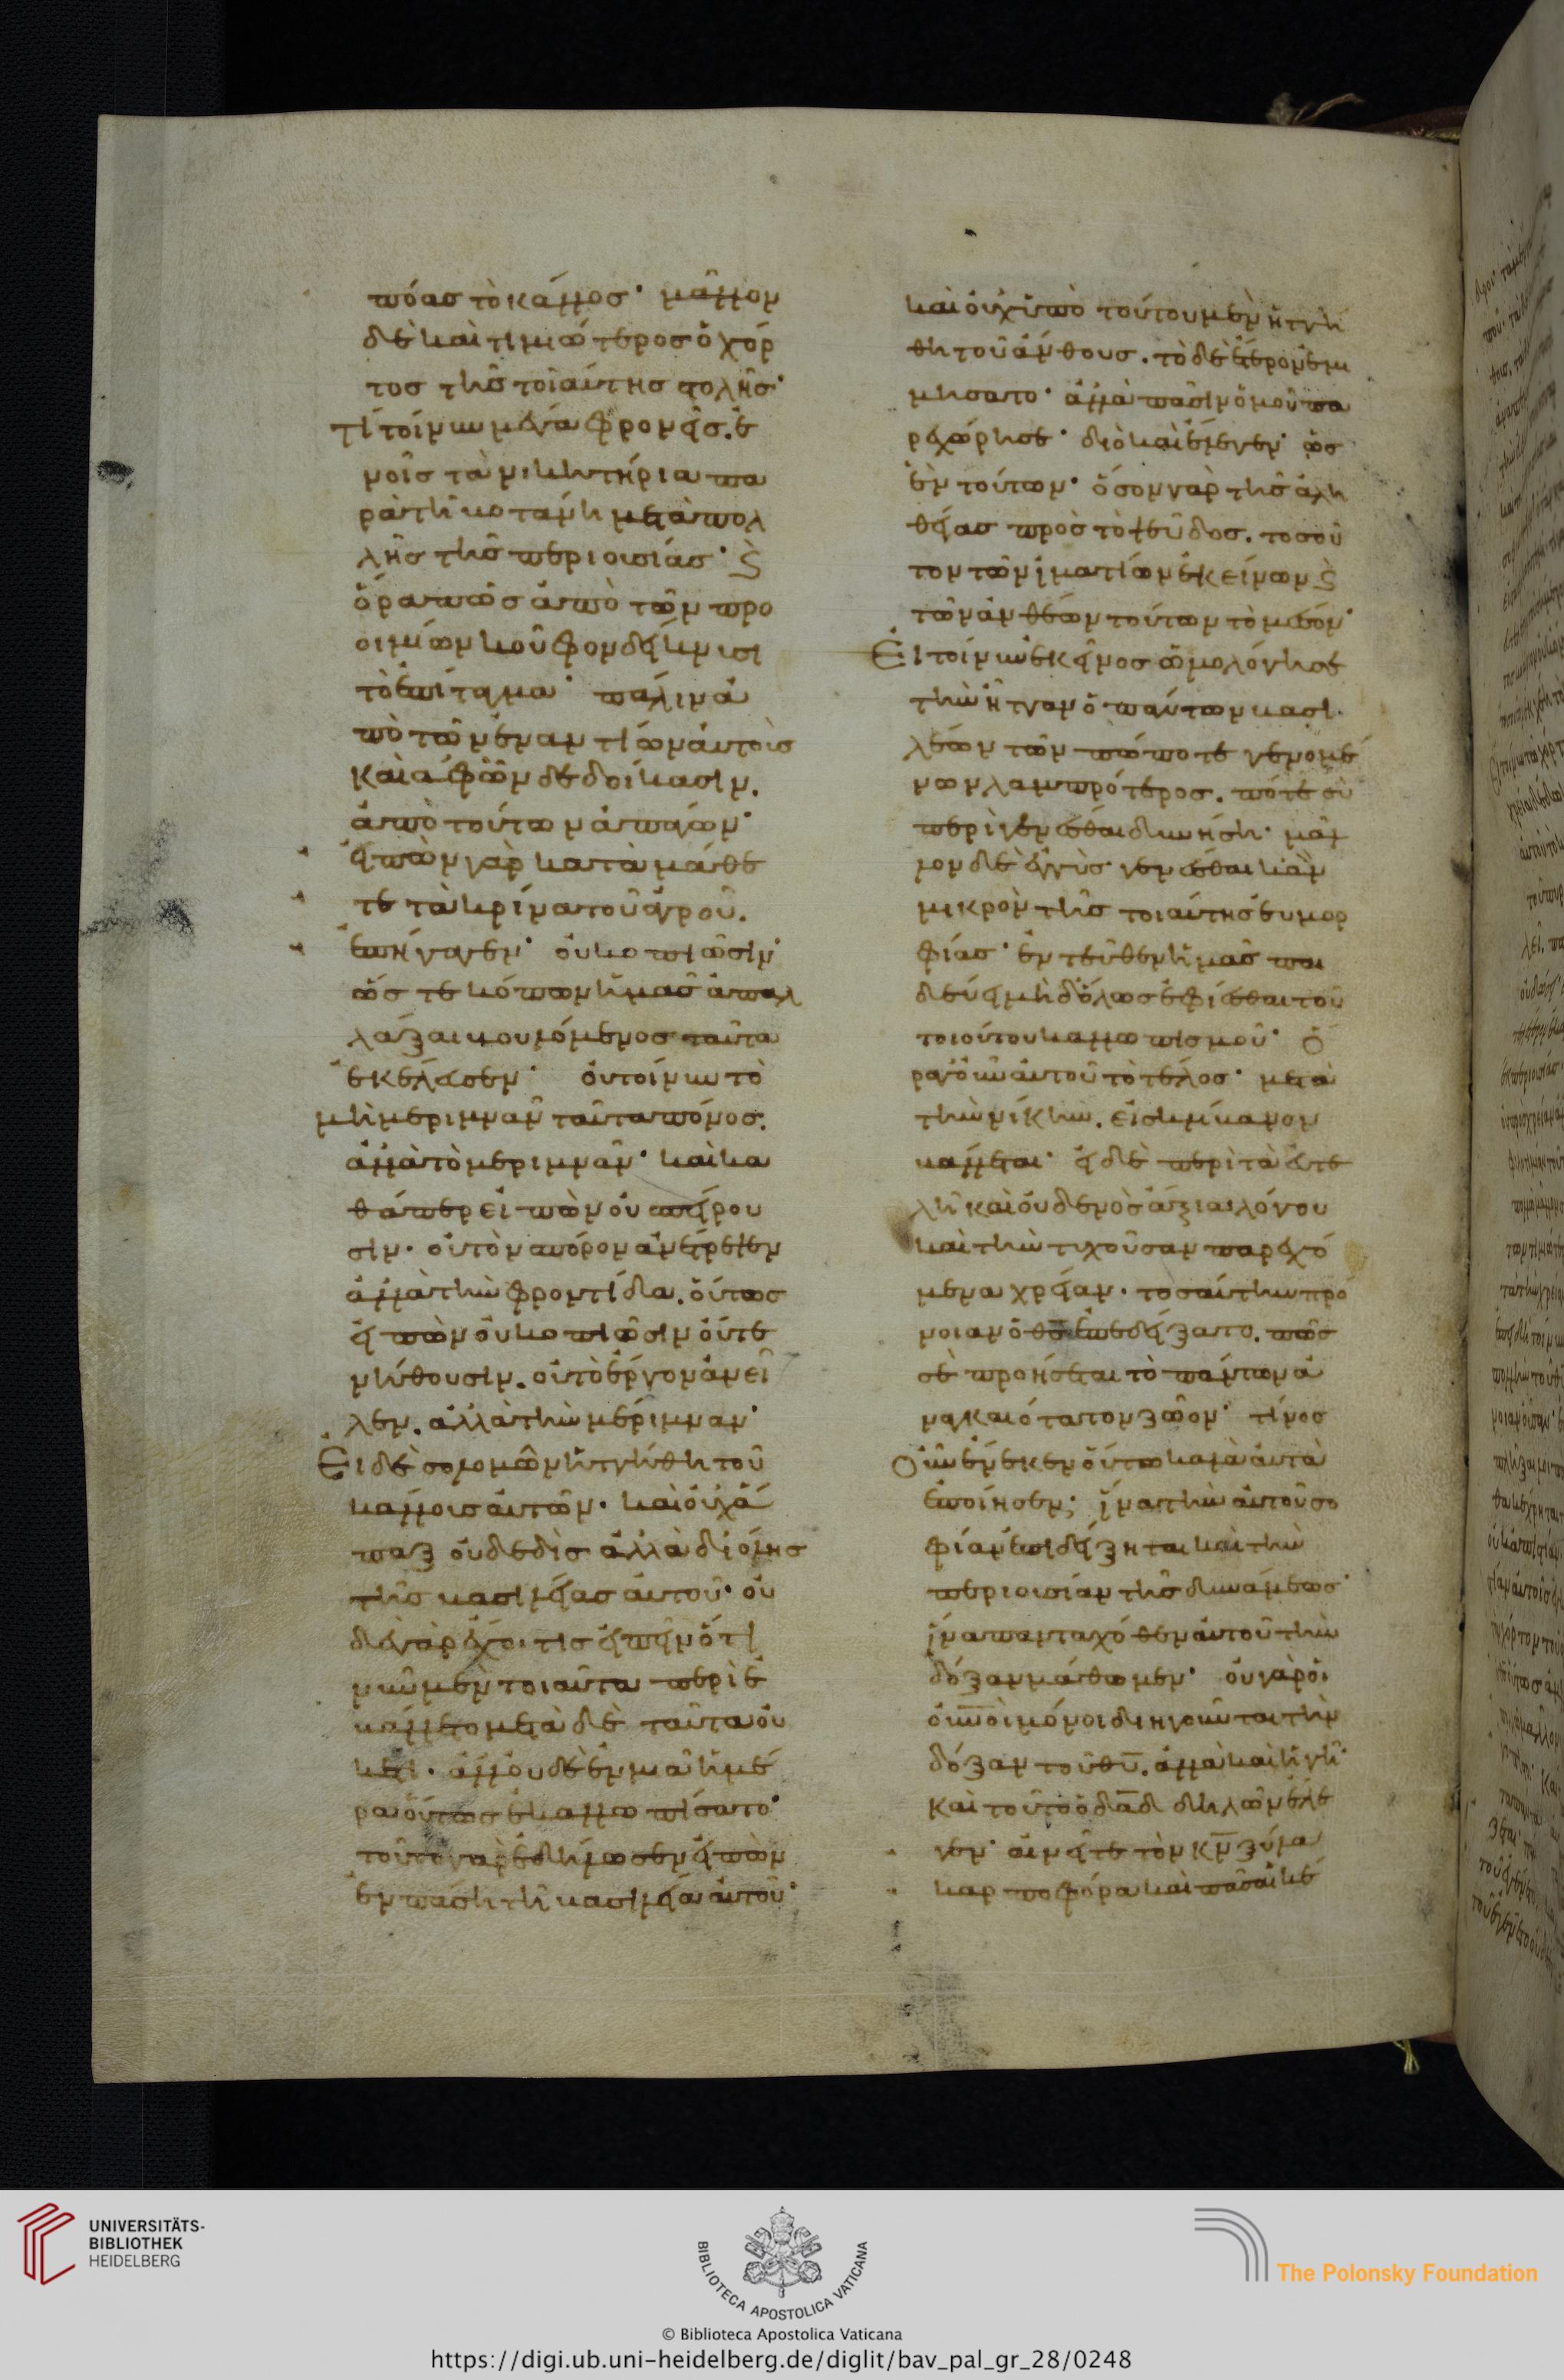 πόας τὸ κάλλος· μᾶλλον
δὲ καὶ τιμιώτερος ὁ χόρ
τος τῆς τοιαύτης στολῆς·
Τί τοίνυν μέγα φρονεῖς. ἐ
μοὶς τὰ νικητήρια πα
ρὰ τῆ βοτάνη μετὰ πολ
λῆς τῆς περιουσίας· καὶ
ὅρα πῶς ἀπὸ τῶν προ
οιμίων κοῦφον δείκνυσι
τὸ ἐπίταγμα· πάλιν ἀ
πὸ τῶν ἐναντίων αὐτοὺς
καὶ ἀφ ὧν δεδοίκασιν.
ἀπὸ τούτων ἀπάγων·
εἰπὼν γὰρ καταμάθε
τε τὰ κρίνα τοῦ ἀγροῦ.
ἐπήγαγεν· οὐ κοπιῶσιν·
ὥστε κόπων ἡμᾶς ἀπαλ
λάξαι βουλόμενος ταῦτα
ἐκέλευσεν· οὐ τοίνυν τὸ
μὴ μεριμνᾶν ταῦτα πόνος.
ἀλλὰ τὸ μεριμνᾶν· καὶ κα
θάπερ εἰπὼν οὐ σπείρου
σιν· οὐ τὸν σπόρον ἀνεῖλεν
ἀλλὰ τὴν φροντίδα. οὕτως
εἰπὼν οὐ κοπιῶσιν οὔτε
νήθουσιν. οὐ τὸ ἔργον ἀνεῖ
λεν. ἀλλὰ τὴν μέριμναν·
Εἰ δὲ σολομῶν ἡττήθη τοῦ
κάλλους αὐτῶν· καὶ οὐχ ἅ
παξ οὐδὲ δὶς ἀλλὰ δι ὅλης
τῆς βασιλείας αὐτοῦ· οὐ
δὲ γὰρ ἔχοι τις εἰπεῖν ὅτι
νῦν μὲν τοιαῦτα περιε
βάλλετο μετὰ δὲ ταῦτα οὐ
κέτι. ἀλλ οὐδὲ ἐν μιᾶ ἡμέ
ρα οὕτως ἐκαλλωπίσατο·
τοῦτο γὰρ ἐδήλωσεν εἰπὼν
ἐν πάση τῆ βασιλεία αὐτοῦ·
καὶ οὐχ ὑπὸ τούτου μὲν ἡττή
θη τοῦ ἄνθους. τὸ δὲ ἕτερον ἐμι
μήσατο· ἀλλὰ πᾶσιν ὁμοῦ πα
ρεχώρησε· διὸ καὶ ἔλεγεν· ὡς
ἓν τούτων· ὅσον γὰρ τῆς ἀλη
θείας πρὸς τὸ ψεῦδος. τοσοῦ
τον τῶν ἱματίων ἐκείνων καὶ
τῶν ἀνθέων τούτων τὸ μέσον·
Εἰ τοίνυν ἐκεῖνος ὡμολόγησε
τὴν ἧτταν ὁ πάντων βασι
λέων τῶν πώποτε γενομέ
νων λαμπρότερος. πότε σὺ
περιγενέσθαι δυνήση· μᾶλ
λον δὲ ἐγγὺς γενέσθαι κἂν
μικρὸν τῆς τοιαύτης εὐμορ
φίας· ἐντεῦθεν ἡμᾶς παι
δεύει μὴ δόλως ἐφίεσθαι τοῦ
τοιούτου καλλωπισμοῦ· ὅ
ρα γοῦν αὐτοῦ τὸ τέλος· μετὰ
τὴν νίκην. εἰς κλίβανον
βάλλεται· εἰ δὲ περὶ τὰ εὐτε
λῆ καὶ οὐδενὸς ἄξια λόγου
καὶ τὴν τυχοῦσαν παρεχό
μενα χρείαν. τοσαύτην πρό
νοιαν ὁ θς ἐπεδείξατο. πῶς
σὲ προήσεται τὸ πάντων ἀ
ναγκαιότατον ζῶον· τίνος
Οὖν ἕνεκεν οὕτω καλὰ αὐτὰ
ἐποίησεν; ἵνα τὴν αὐτοῦ σο
φίαν ἐπιδείξηται καὶ τὴν
περιουσίαν τῆς δυνάμεως·
ἵνα πανταχόθεν αὐτοῦ τὴν
δόξαν μάθωμεν· οὐ γὰρ οἱ
οὐνοὶ μόνοι διηγοῦνται τὴν
δόξαν τοῦ θυ. ἀλλὰ καὶ ἡ γῆ·
καὶ τοῦτο ὁ δαδ δηλῶν ἔλε
γεν· αἰνεῖτε τὸν κν ξύλα
καρποφόρα καὶ πᾶσαι κέ
UNIVERSITÄTS-
BIBLIOTHEK
HEIDELBERG
BIBLIOTECA APOSTOLICA VATICANA
The Polonsky Foundation
© Biblioteca Apostolica Vaticana
https://digi.ub.uni-heidelberg.de/diglit/bav_pal_gr_28/0248